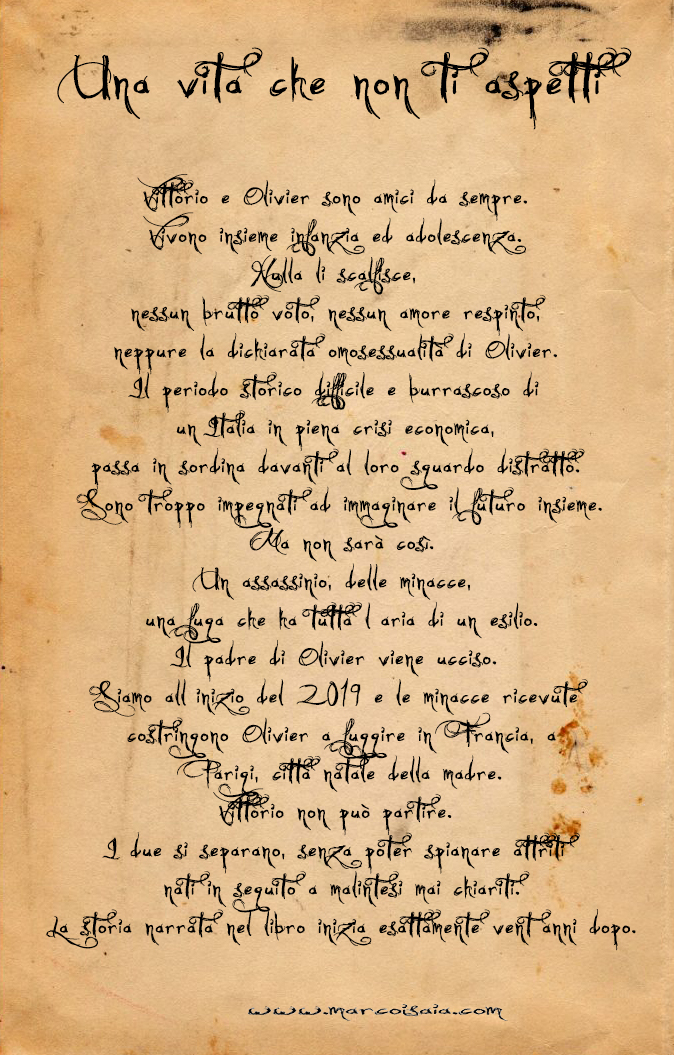 Una vita che non ti aspetti
Vittorio e Olivier sono amici da sempre.
Vivono insieme infanzia ed adolescenza.
Nulla li scalfisce,
nessun brutto voto, nessun amore respinto,
neppure la dichiarata omosessualità di Olivier.
Il periodo storico difficile e burrascoso di
un Italia in piena crisi economica,
passa in sordina davanti al loro sguardo distratto.
Sono troppo impegnati ad immaginare il futuro insieme.
Ma non sarà così.
Un assassinio, delle minacce,
una fuga che ha tutta l aria di un esilio.
Il padre di Olivier viene ucciso.
Siamo all inizio del 2019 e le minacce ricevute
costringono Olivier a fuggire in Francia, a
Parigi, città natale della madre.
Vittorio non può partire.
I due si separano, senza poter spianare attriti
nati in seguito a malintesi mai chiariti.
La storia narrata nel libro inizia esattamente vent anni dopo.
www.marcoisaia.com